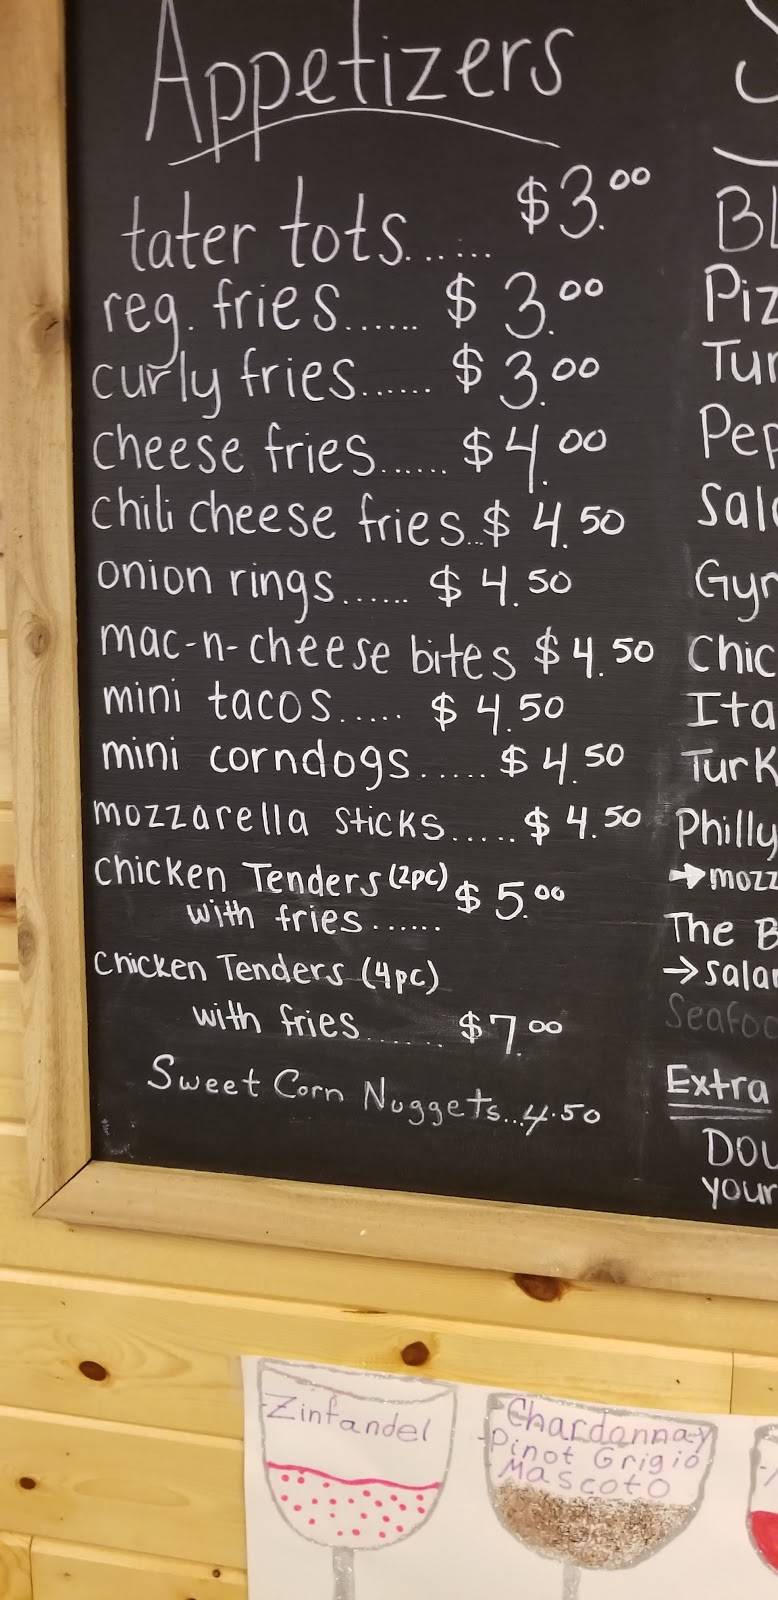 Appetizers
tater tots...... $3.00
reg. fries...... $3.00
curly fries...... $3.00
cheese fries...... $4.00
chili cheese fries... $4.50
onion rings...... $4.50
mac-n-cheese bites $4.50
mini tacos..... $4.50
mini corndogs..... $4.50
mozzarella sticks..... $4.50
Chicken Tenders (2pc) $5.00
with fries......
Chicken Tenders (4pc)
with fries...... $7.00
Sweet Corn Nuggets...4.50
BL
Piz
Tur
Pep
Sala
Gyr
Chic
Ita
Turk
Philly
→mozz
The B
→Salam
Seafoo
Extra
Dou
your
-Zinfandel
-Chardonnay
-Pinot Grigio
-Mascoto